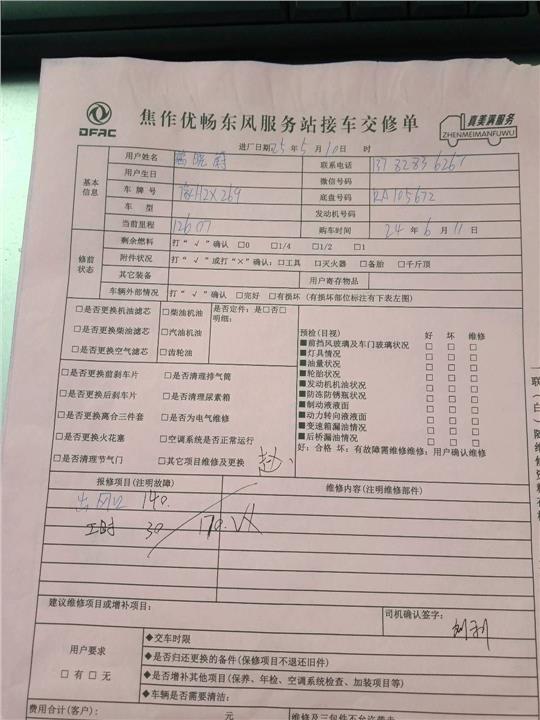 DFAC
焦作优畅东风服务站接车交修单
真美满服务
ZHENMEIMANFUWU
进厂日期 25 年 5 月 10 日 时
基本信息
用户姓名 联系电话 13782836261
用户生日 微信号码
车牌号 豫H2X269 底盘号码 RA105672
车型 发动机号码
当前里程 12607 购车时间 24 年 6 月 11 日
修前状态
剩余燃料 打“√”确认 □0 □1/4 □1/2 □1
附件状况 打“√”或打“×”确认:□工具 □灭火器 □备胎 □千斤顶
其它装备 用户寄存物品
车辆外部情况 打“√”确认 □完好 □有损坏(有损坏部位标注有下表左图)
□是否更换机油滤芯 □柴油机油 是否定件:是□否□
□是否更换柴油滤芯 □汽油机油 明细:
□是否更换空气滤芯 □齿轮油
□是否更换前刹车片 □是否清理排气筒
□是否更换后刹车片 □是否清理尿素箱
□是否更换离合三件套 □是否为电气维修
□是否更换火花塞 □空调系统是否正常运行
□是否清理节气门 □其它项目维修及更换
预检(目视) 好 坏 维修
■前挡风玻璃及车门玻璃状况 □ □ □
■灯具情况 □ □ □
■油量状况 □ □ □
■轮胎状况 □ □ □
■发动机机油状况 □ □ □
■防冻防锈瓶状况 □ □ □
■制动液液面 □ □ □
■动力转向液液面 □ □ □
■变速箱漏油情况 □ □ □
■后桥漏油情况 □ □ □
好:合格 坏:有故障需维修维修:用户确认维修
报修项目(注明故障) 维修内容(注明维修部件)
出风口 140.
工时 30 170. VX
建议维修项目或增补项目:
司机确认签字:
用户要求
□有 □无
◆交车时限
◆是否归还更换的备件(保修项目不退还旧件)
◆是否增补其他项目(保养、年检、空调系统检查、加装项目等)
◆车辆是否需要清洁:
费用合计(客户): 元